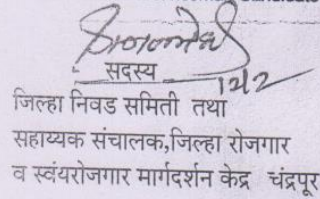 सदस्य
जिल्हा निवड समिती तथा
सहाय्यक संचालक,जिल्हा रोजगार
व स्वंयरोजगार मार्गदर्शन केंद्र चंद्रपूर